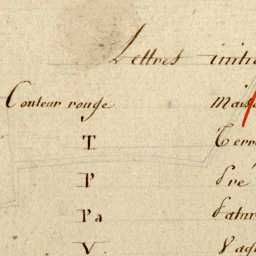 Lettres initi
Couleur rouge Mais
T Terre
P Pré
Pa Patur
V. Vag